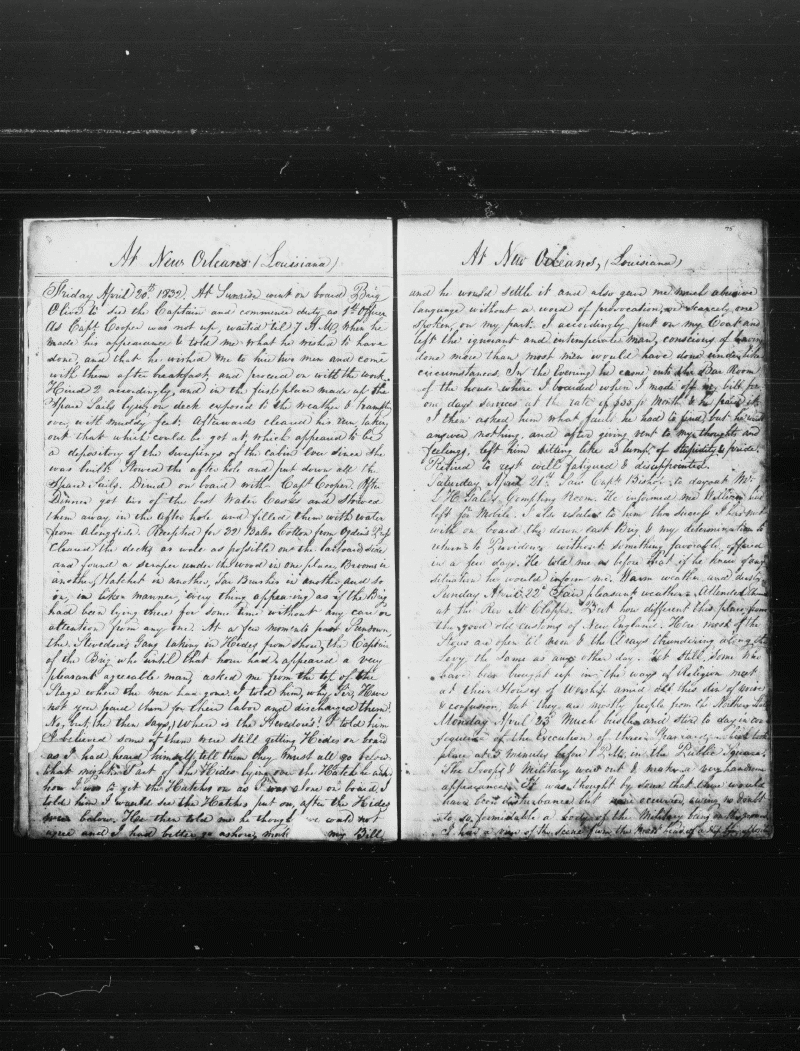 At New Orleans (Louisiana)
Friday April 20th 1832, At Sunrise went on board Brig
Olive to see the Captain and commence duty as 1st Officer
As Capt Cooper was not up, waited til 7 A.M. when he
made his appearance & told me what he wished to have
done, and that he wished me to hire two men and come
with them after breakfast, and proceed on with the work
Hired 2 accordingly, and in the first place made up the
Spare Sails lying on deck exposed to the weather &
over with muddy feet. Afterwards cleared his run, taking
out that which could be got at, which appeared to be
a depository of the sweepings of the cabin ever since she
was built. Stowed the after hole and put down all the
Spare Sails. Dined on board with Capt Cooper. After
Dinner got two of the best Water Casks and stowed
them away in the after hole and filled them with water
from alongside. Receipted for 22 Bales Cotton from
Cleared the decks as well as possible on the larboard side
and found a scraper under the wood in one place, Brooms in
another, Hatchet in another, Tar Brushes in another and so
on, in like manner, every thing appearing as if the Brig
had been lying there for some time without any care or
attention from any one. At a few moments
the Stevedores Gang taking in Hides from shore, the Captain
of the Brig who until that hour had appeared a very
pleasant agreeable man, asked me from the top of the
Stage where the men had gone. I told him, why Sir, Have
not you paid them for their labor and discharged them?
No, but, he then says, Where is the Stevedores? I told him
I believed some of them were still getting Hides on board
as I had heard himself tell them they must all go below
that night. Part of the Hides lying on the Hatch he asked
how I was to get the Hatches on as I was alone on board I
told him I would see the Hatches put on, after the Hides
were below. He then told me he though we could not
agree and I had better go ashore, my Bill,
At New Orleans, (Louisiana)
and he would settle it and also gave me much abusive
language without a word of provocation, or scarcely one
spoken, on my part. I accordingly put on my Coat and
left the ignorant and intemperate man, conscious of having
done more than most men would have done under like
circumstances. In the Evening he came into the Bar Room
of the house where I boarded when I made off my bill for
one days services at the rate of $35 pr Month & he paid it.
I then asked him what fault he had to find, but he
answered nothing, and after giving vent to my thoughts and
feelings, left him sitting like a lump of stupidity & pride.
Retired to rest well fatigued & disappointed.
Saturday April 21st. Saw Capt Bishop to day at Mr
Gale's Compting Room. He informed me William had
left for Mobile. I also related to him the success I had met
with on board the down east Brig & my determination to
return to Providence without something favorable offered
in a few days. He told me as before that if he knew of any
situation he would inform me. Warm weather, and dusty
Sunday April 22d Fair pleasant weather. Attended Church
at the Rev Mr Clapps. But how different this place from
the good old customs of New England. Here most of the
Stores are open til noon & the Drays thundering along the
Levy the same as any other day. Yet still, some who
have been brought up in the ways of Religion meet
at their Houses of Worship amid all this din of noise
& confusion, but they are mostly people from the Northern
Monday April 23d Much bustle and stir to day in con-
sequence of the Execution of three Spaniards, which took
place at 5 minutes before 1 P.M. in the Public Square.
The Troops & Military went out & made a very handsome
appearance. It was thought by some that there would
have been disturbance but none occurred, owing no doubt
to so formidable a body of the Military being on the ground
I had a view of the scene from the mast head of a